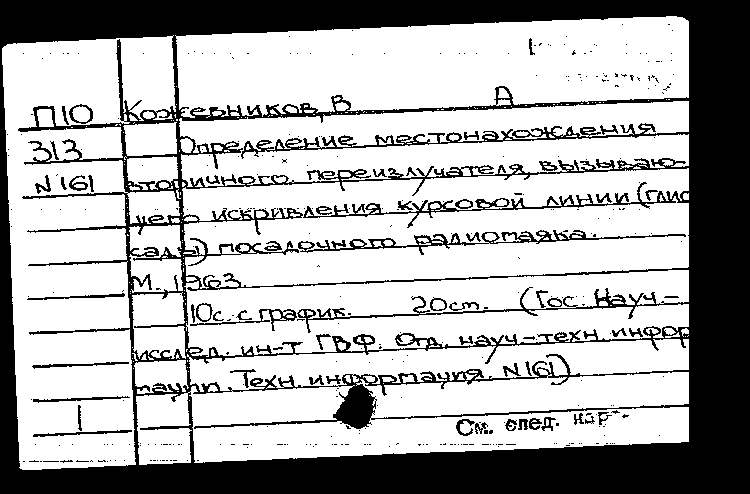 П10 Кожевников, В А
313 Определение местонахождения
N161 вторичного переизлучателя, вызываю-
щего искривления курсовой линии (глис
сады) посадочного радиомаяка.
М., 1963.
10с. с график. 20 ст. (Гос. Науч-
исслед. ин-т ГВФ. Отд. науч-техн. инфор
мации. Техн. информация. N161).
1
См. след. кар